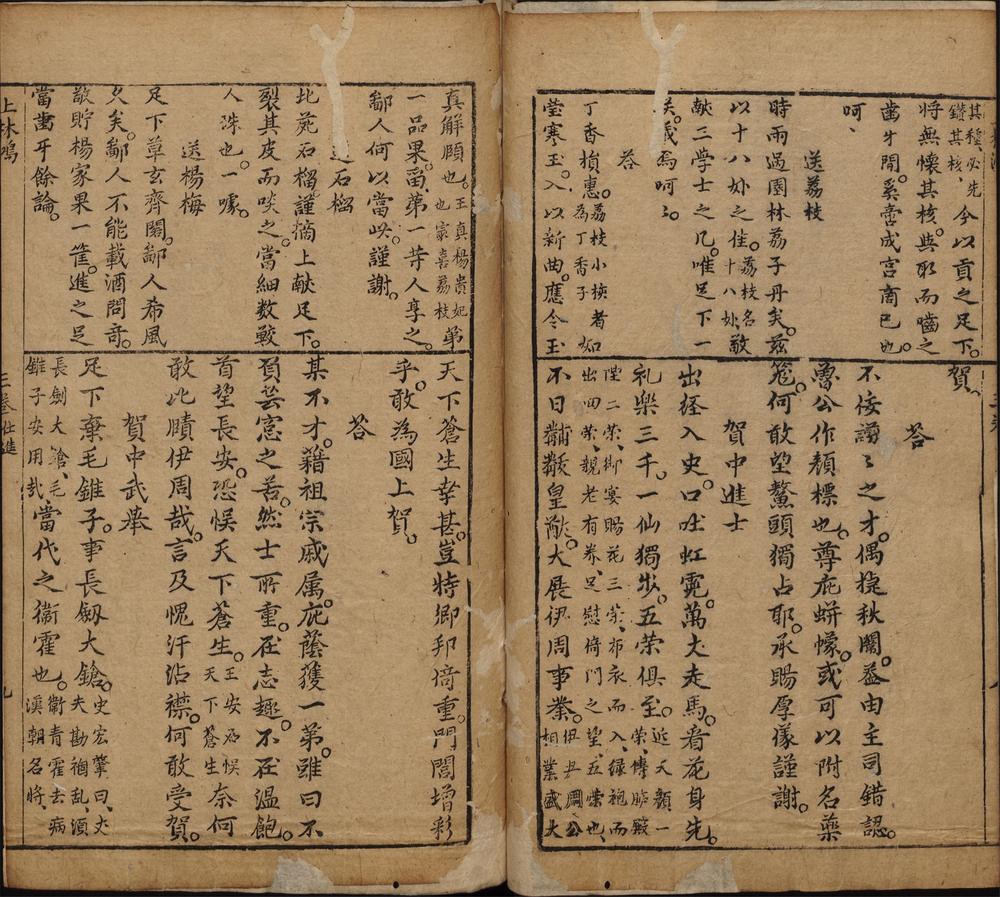 其種必先
鑽其核、今以貢之足下。
將無懷其核。與取而嚙之
齒牙間。奚啻成宮商已也。
呵、
送荔枝
時雨過園林荔子丹矣。茲
以十八妙之佳。荔枝名十八妙敬
献二學士之几。唯足下一
義焉呵〻。
荅
丁香損惠。荔枝小核者為丁香子如
瑩寒玉。入以新曲。應令玉
賀。
荅
不佞謭〻之才。偶捷秋闈。益由主司錯認。
魯公作顏標也。尊庇蛢幪。或可以附名藥
籠。何敢望鰲頭獨占耶。承賜厚儀謹謝。
賀中進士
出経入史。口吐虹霓。萬丈走馬。看花身先。
礼樂三千。一仙獨步。五荣俱至。近天顏一荣、傳臚殿
陛二荣、御宴賜花三荣、布衣而入、緑袍而
出四荣、親老有养、足慰倚門之望、五荣也、
不日黼黻皇猷。大展伊周事業。伊尹周公相業盛大
真解頤也。王真楊貴妃也家喜荔枝第
一品果。當第一等人享之。
鄙人何以當此。謹謝。
送石榴
北苑石榴謹摘上献足下。
裂其皮而啖之。當細数鮫
人珠也。一噱。
送楊梅
足下草玄齊閣。鄙人希風
久矣。鄙人不能載酒問奇。
敬貯楊家果一筐。進之足
當齒牙餘論。
天下蒼生幸甚。豈特鄉邦倚重。門閭增彩
乎。敢為國上賀。
荅
某不才。藉祖宗戚属。庇蔭獲一第。雖曰不
負芸窓之苦。然士所重。在志趣。不在温飽。
首望長安。恐悮天下蒼生。王安石悮天下蒼生奈何
敢比賾伊周哉。言及愧汗沾襟。何敢受賀。
賀中武舉
足下棄毛錐子。事長劔大鎗。史宏肇曰、丈夫勘禍乱、湏
長劍大鎗、毛錐子安用哉、當代之衞霍也。衛青霍去病漢朝名將
上林鴻
三卷仕進
九